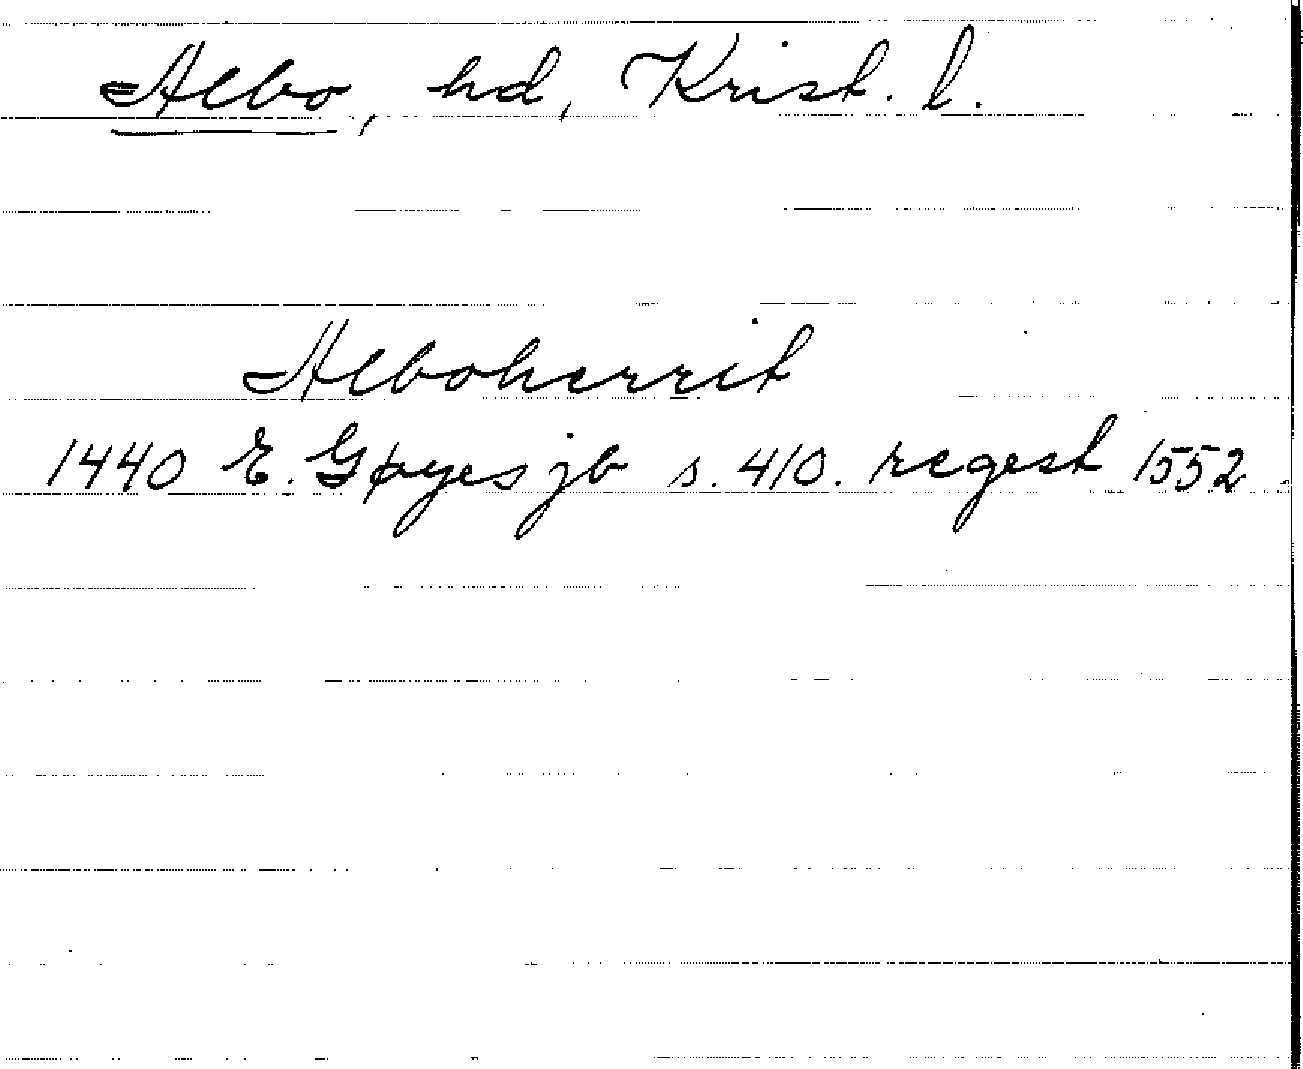 Albo, hd, Krist. l.
Alboherrit
1440 E. Gøyes jb s. 410. regest 1552